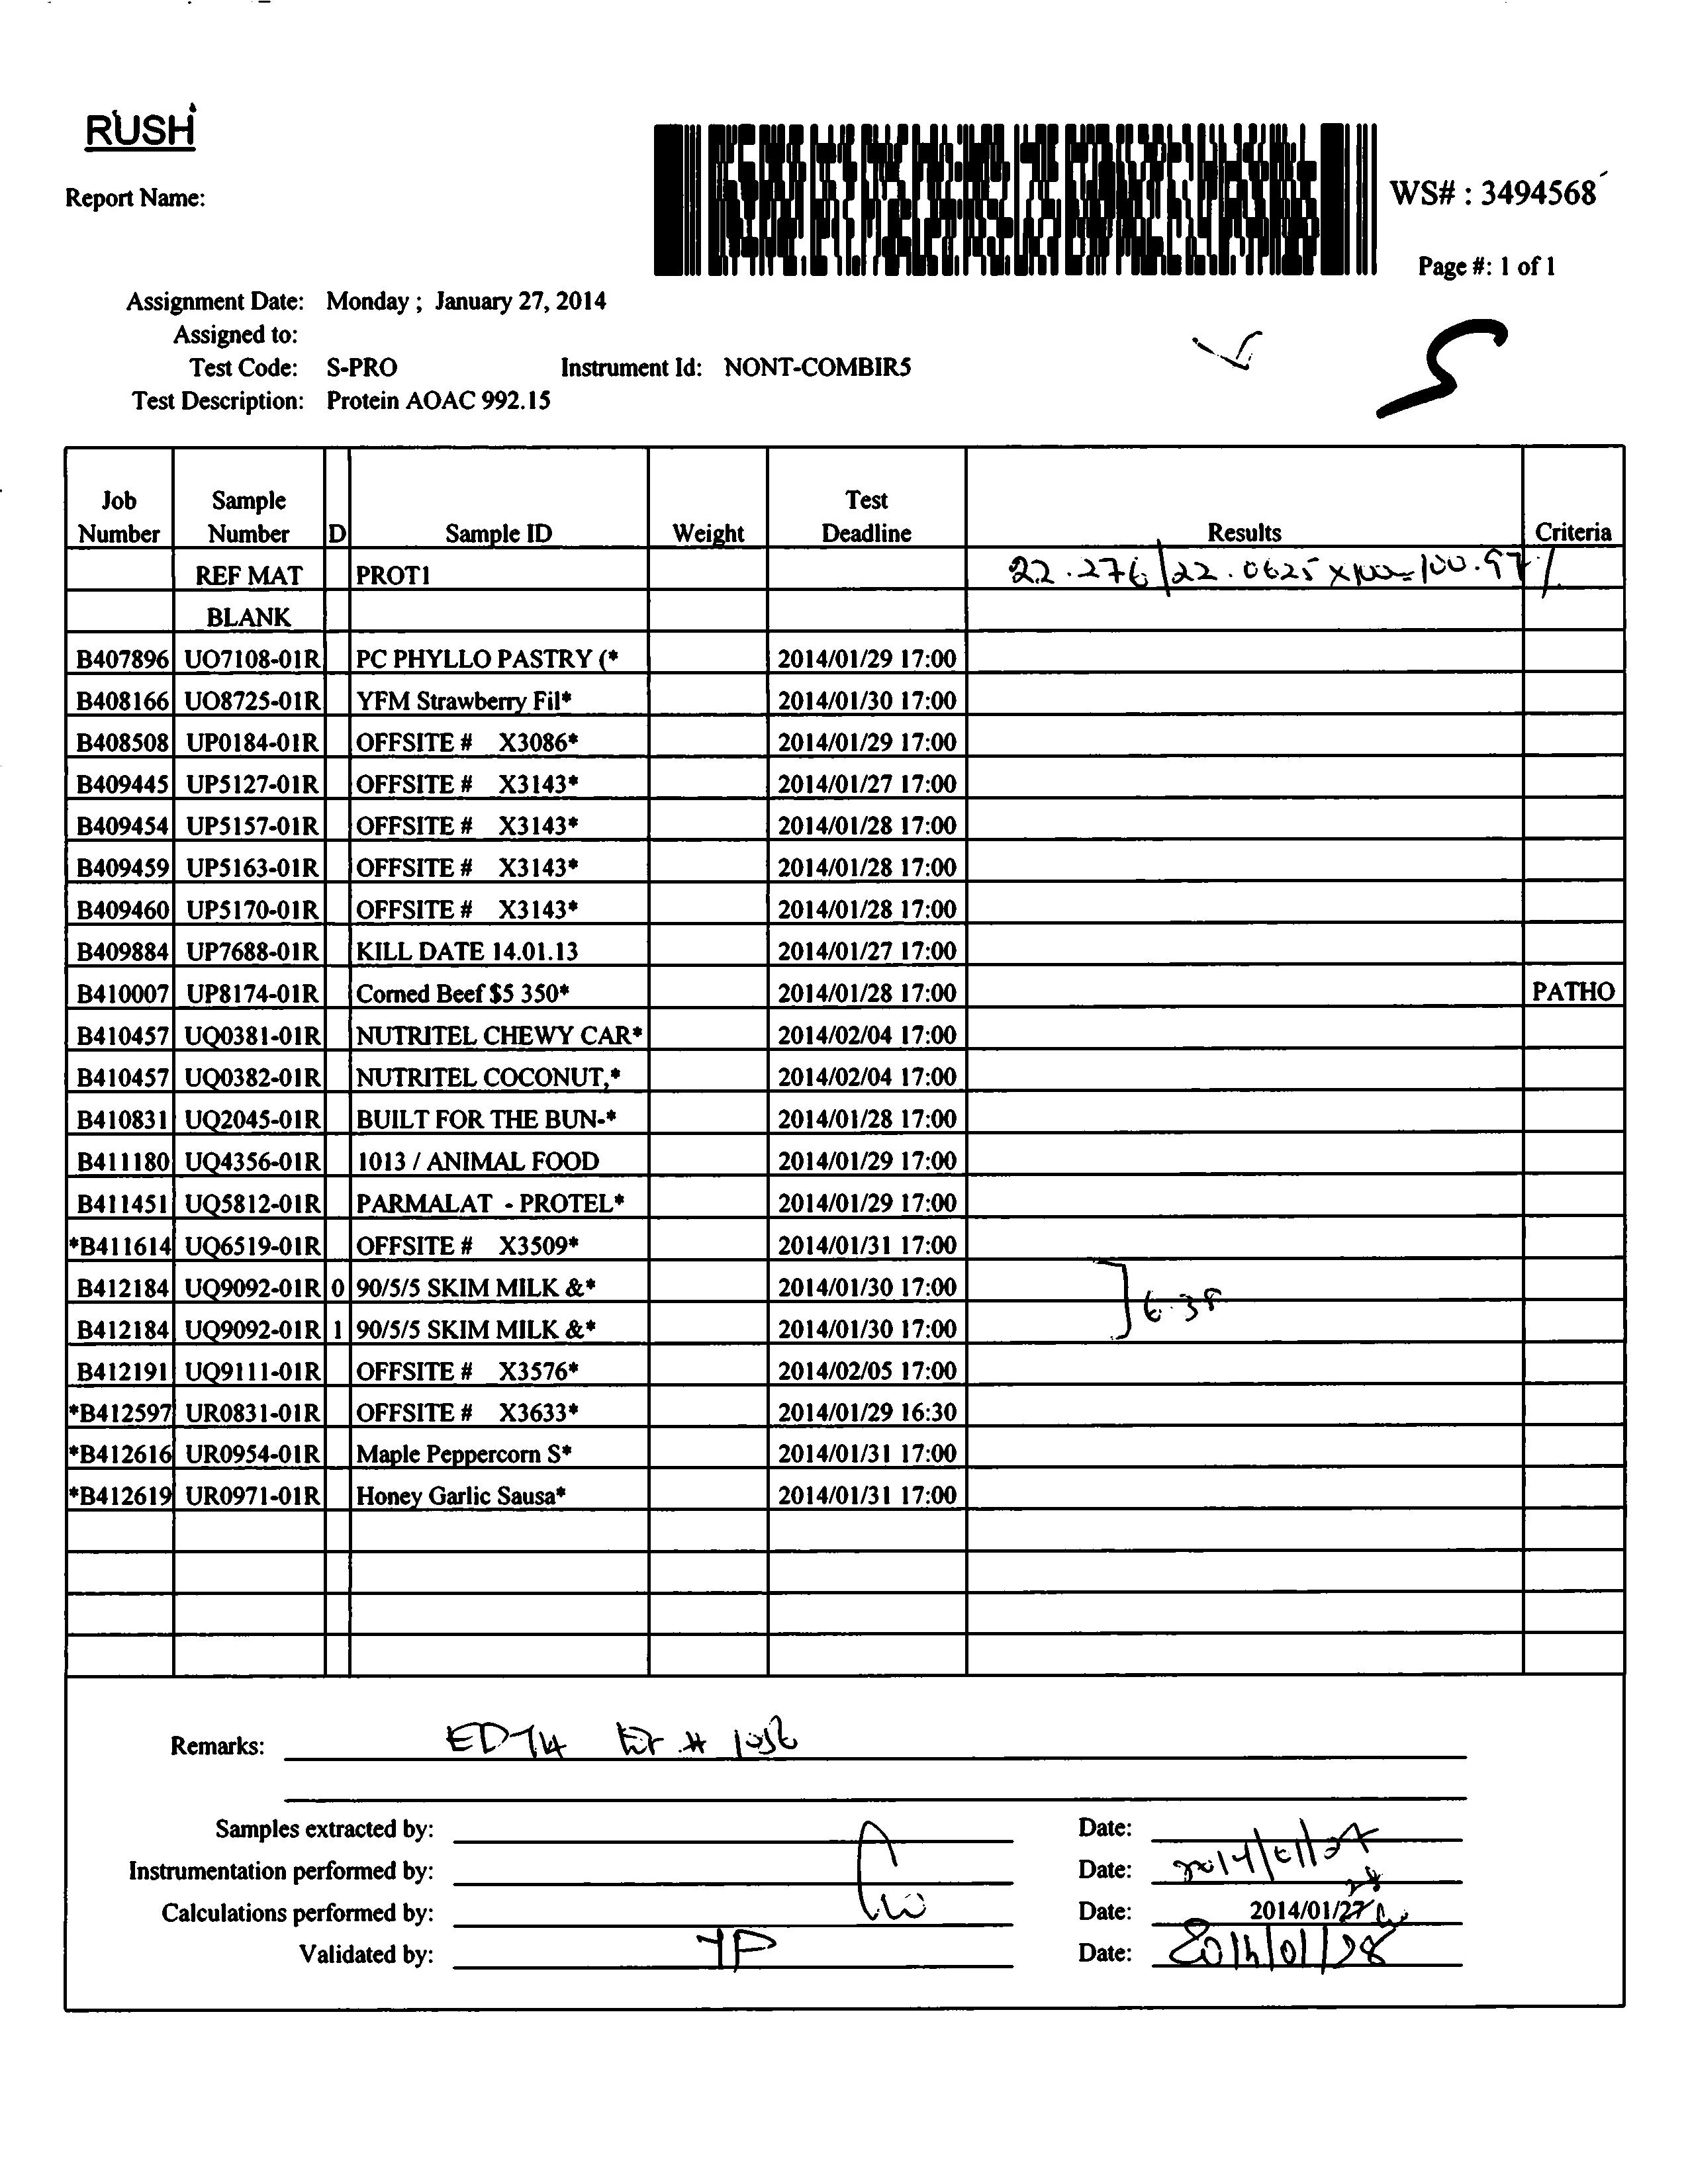 RUSH
Report Name:
WS# : 3494568
Page #: 1 of 1
Assignment Date: Monday ; January 27, 2014
Assigned to:
Test Code: S-PRO Instrument Id: NONT-COMBIR5
Test Description: Protein AOAC 992.15
5
Job Number Sample Number D Sample ID Weight Test Deadline Results Criteria
REF MAT PROT1 22.276/22.0625 x100=100.97%
BLANK
B407896 UO7108-01R PC PHYLLO PASTRY (* 2014/01/29 17:00
B408166 UO8725-01R YFM Strawberry Fil* 2014/01/30 17:00
B408508 UP0184-01R OFFSITE # X3086* 2014/01/29 17:00
B409445 UP5127-01R OFFSITE # X3143* 2014/01/27 17:00
B409454 UP5157-01R OFFSITE # X3143* 2014/01/28 17:00
B409459 UP5163-01R OFFSITE # X3143* 2014/01/28 17:00
B409460 UP5170-01R OFFSITE # X3143* 2014/01/28 17:00
B409884 UP7688-01R KILL DATE 14.01.13 2014/01/27 17:00
B410007 UP8174-01R Corned Beef $5 350* 2014/01/28 17:00 PATHO
B410457 UQ0381-01R NUTRITEL CHEWY CAR* 2014/02/04 17:00
B410457 UQ0382-01R NUTRITEL COCONUT,* 2014/02/04 17:00
B410831 UQ2045-01R BUILT FOR THE BUN-* 2014/01/28 17:00
B411180 UQ4356-01R 1013 / ANIMAL FOOD 2014/01/29 17:00
B411451 UQ5812-01R PARMALAT - PROTEL* 2014/01/29 17:00
*B411614 UQ6519-01R OFFSITE # X3509* 2014/01/31 17:00
B412184 UQ9092-01R 0 90/5/5 SKIM MILK &* 2014/01/30 17:00 6.38
B412184 UQ9092-01R 1 90/5/5 SKIM MILK &* 2014/01/30 17:00
B412191 UQ9111-01R OFFSITE # X3576* 2014/02/05 17:00
*B412597 UR0831-01R OFFSITE # X3633* 2014/01/29 16:30
*B412616 UR0954-01R Maple Peppercorn S* 2014/01/31 17:00
*B412619 UR0971-01R Honey Garlic Sausa* 2014/01/31 17:00
Remarks: EDTA #
Samples extracted by: Date:
Instrumentation performed by: Date: 2014/01/27
Calculations performed by: Date: 2014/01/27 28
Validated by: YP Date: 2014/01/28